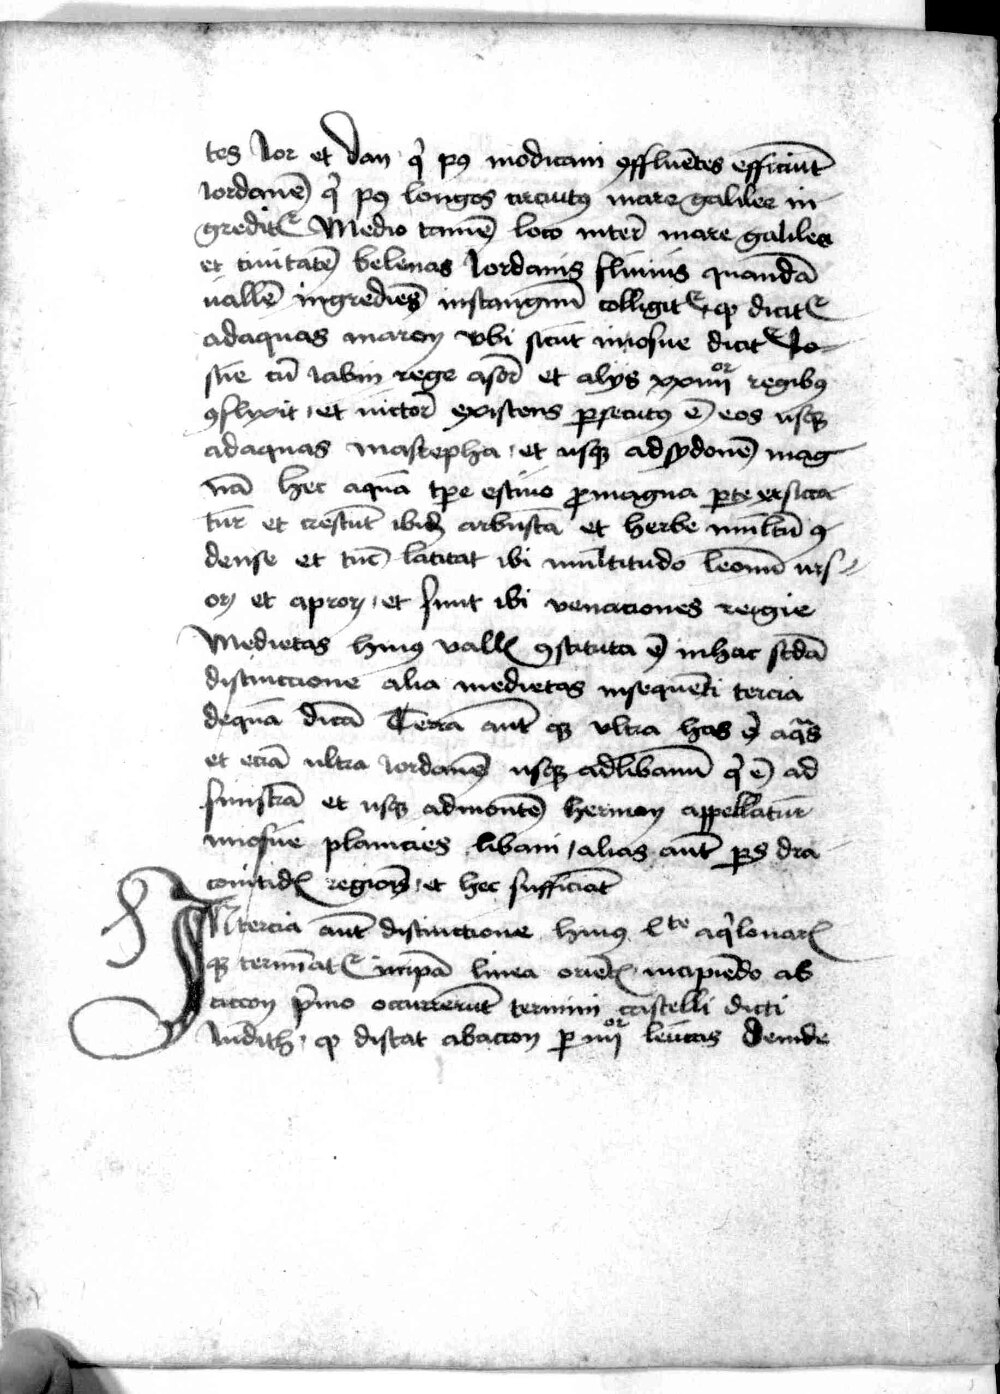 tes Jor et dan qͥ pꝰ modicam ꝯffluētes efficiūt
Jordanē qͥ pꝰ longos circuitꝰ mare galilee in
gredit᷑ Medio tamē loco inter mare galilee
et ciuitatē belenas Jordanis fluuius quandā
uallē ingrediēs instangnū colligit᷑ qͦ dicit᷑
adaquas maron vbi sicut iniosue dicit᷑ Jo
sue cū iabin rege asor et alijs xxiiiiᵒʳ regibꝰ
ꝯflixit et uictor existens ꝑsecutꝰ ē eos usqꝫ
adaquas masrepha et usqꝫ adsydonē mag
nā hec aqua tꝑe estiuo ꝓmagna ꝑte exsicca
tur et crescūt ibidē arbusta et herbe multū ꝯ
dense et tūc latitat ibi multitudo leonū urs
oꝝ et aproꝝ et sunt ibi venaciones regie
Medietas huiꝰ vallꝭ ꝯstituta ē inhac scdā
distinccione alia medietas insequēti tercia
dequa dicā Terra aut̄ qꝫ vltra has ē aqᵃs
et eciā ultra iordanē usqꝫ adlibanū qͥ ē ad
sinistrā et usqꝫ admontē hermon appellatur
iniosue planicies libani alias aut̄ ꝑs dra
conitidꝭ regionis et hec sufficiāt
IN tercia aut̄ distinctione huiꝰ qͣrte aqͥlonarꝭ
qꝫ terminat᷑ incipā linea oriētꝭ incipiēdo ab
accon pͥmo occurrerūt termini castelli dicti
Judith qͦ distat abaccon ꝑ iiiiᵒʳ leucas Deinde